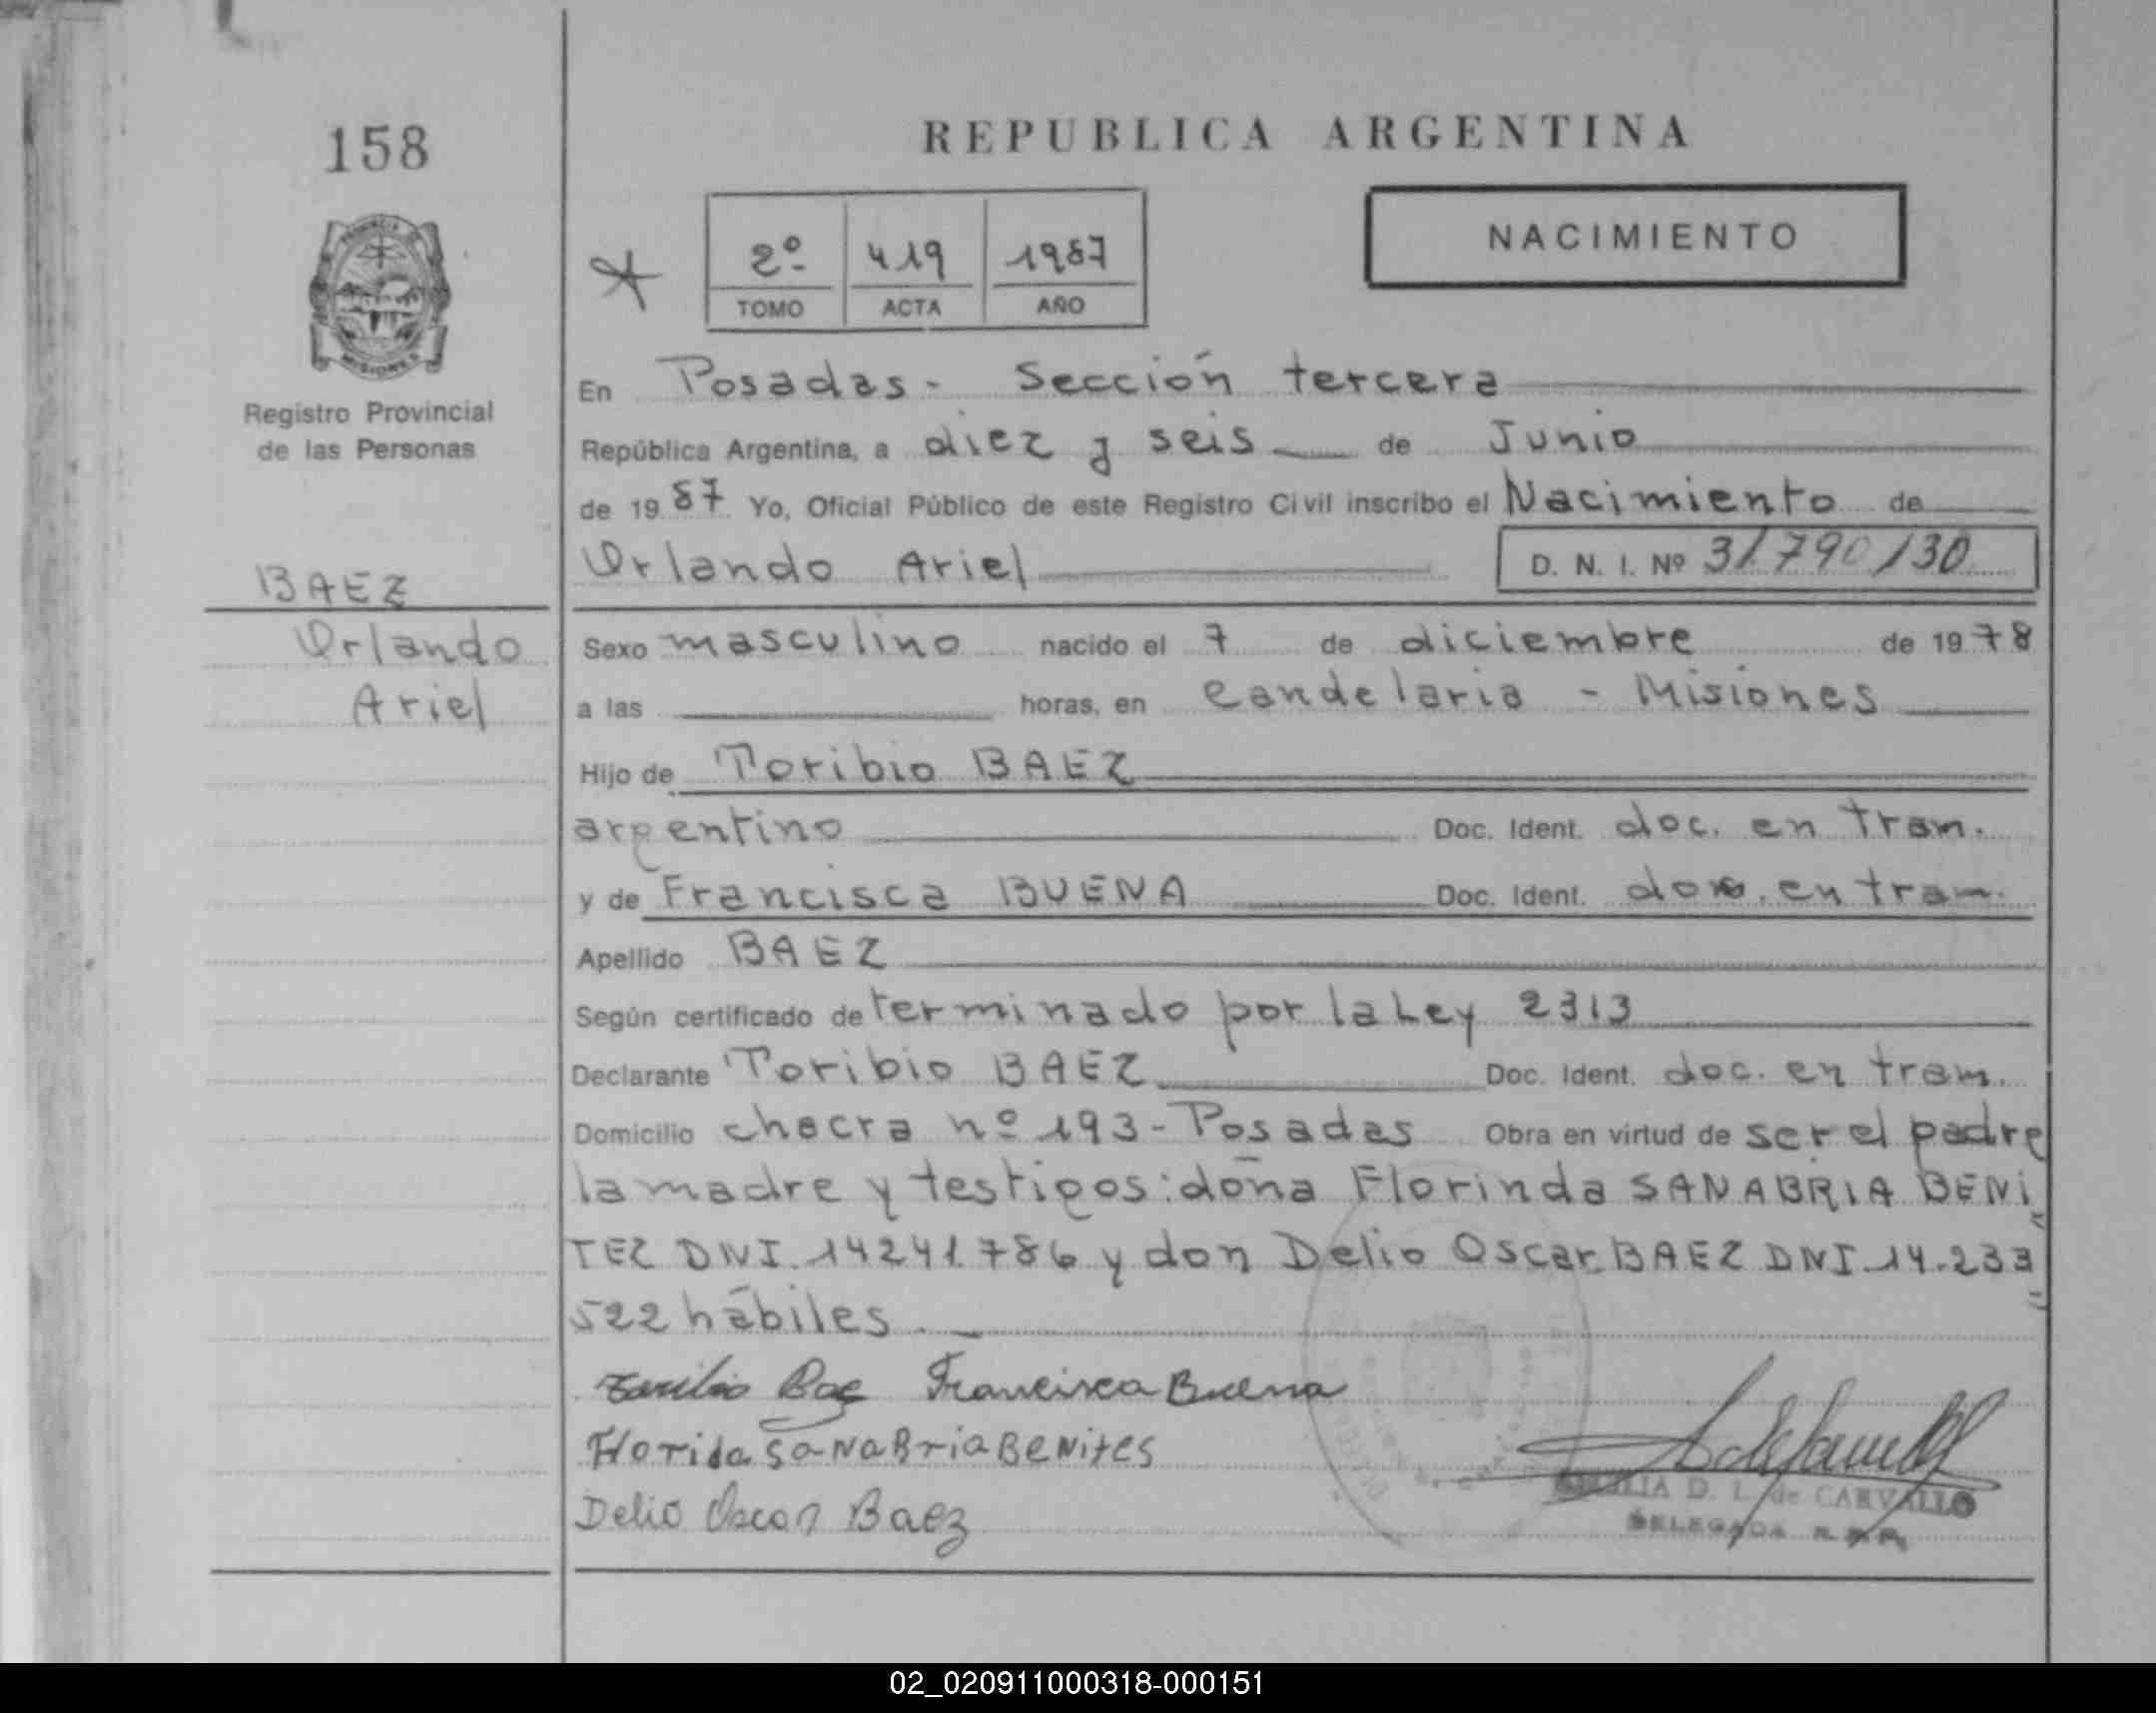 158
REPUBLICA ARGENTINA
NACIMIENTO
2º 419 1987
TOMO ACTA AÑO
Registro Provincial
de las Personas
BAEZ
Orlando
Ariel
En Posadas - Sección tercera
República Argentina, a diez y seis de Junio
de 1987 Yo, Oficial Público de este Registro Civil inscribo el Nacimiento de
Orlando Ariel D. N. I. Nº 31790130
Sexo masculino nacido el 7 de diciembre de 1978
a las horas, en Candelaria - Misiones
Hijo de Toribio BAEZ
argentino Doc. Ident. doc. en tram.
y de Francisca BUENA Doc. Ident. doc. en tram.
Apellido BAEZ
Según certificado determinado por la Ley 2313
Declarante Toribio BAEZ Doc. Ident. doc. en tram.
Domicilio chacra nº 193 - Posadas Obra en virtud de ser el padre
la madre y testigos: doña Florinda SANABRIA BENI
TEZ DNI. 14241.786 y don Delio Oscar BAEZ DNI. 14.233
522 hábiles.
Baez Francisca Buena
Florida SaNaBria BeNites
Delio Oscar Baez
D. L. de CARVALLO
DELEGADA R.P.P.
02_020911000318-000151